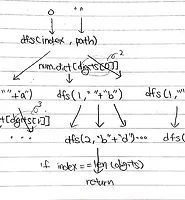 0 ""
dfs(index, path)
num_dict[digits[0]] 2
""+"a") dfs(1, ""+"b") dfs(1, "
t[digits[1]] 3
... dfs(2, "b"+"d")... dfs(
if index == len(digits)
return